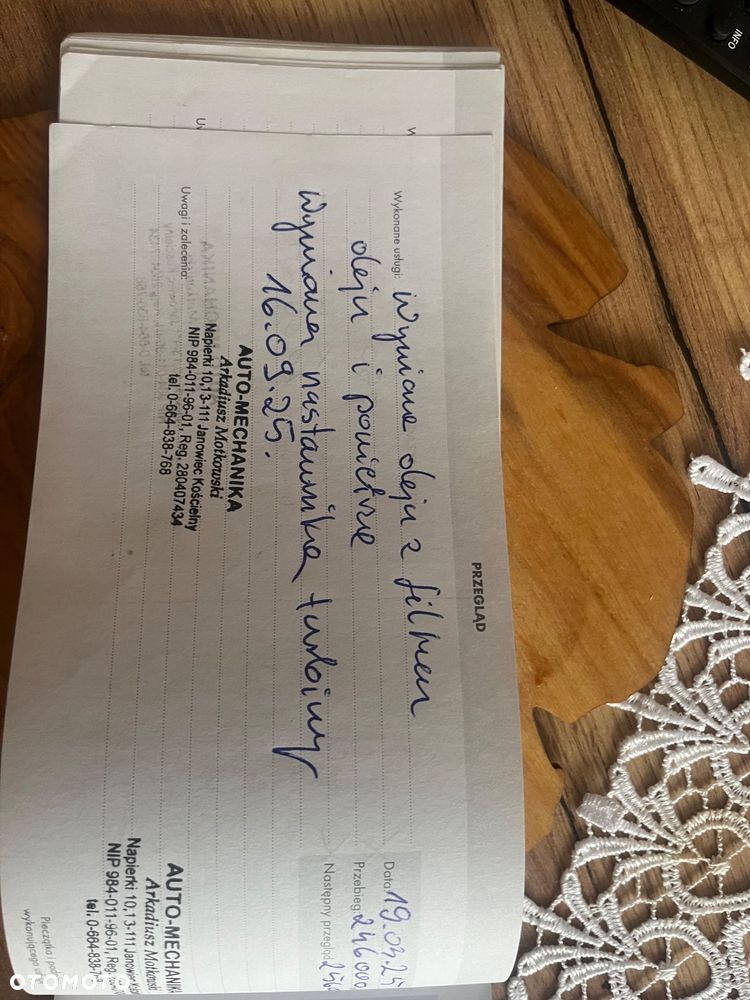 INFO
PRZEGLĄD
Wykonane usługi: Wymiana oleju z filtrem
oleju i powietrze
Wymiana nastawnika turbiny
16.09.25.
Data 19.03.25
Przebieg 246000
Następny przegląd 256
AUTO-MECHANIKA
Arkadiusz Motkowski
Napierki 10,13-111 Janowiec Kościelny
NIP 984-011-96-01, Reg. 280407434
tel. 0-664-838-768
Uwagi i zalecenia:
AUTO-MECHANIKA
Arkadiusz Motkowski
Napierki 10,13-111 Janowiec
NIP 984-011-96-01, Reg.
tel. 0-664-838-7
Pieczątka i
wykonującego
OTOMOTO